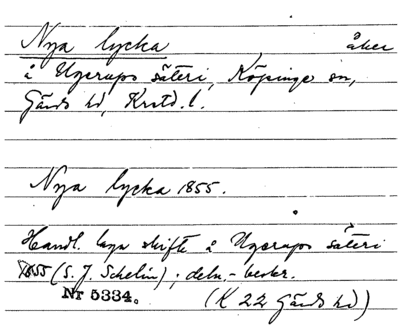 Nya lycka åker
å Ugerups säteri, Köpinge sn,
Gärds hd, Krstd. l.
Nya lycka 1855.
Handl. laga skifte å Ugerups säteri
1855 (S. J. Schelin); deln.-beskr.
Nr 5334. (K 22 Gärds hd)